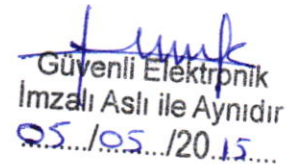 Güvenli Elektronik
İmzalı Aslı ile Aynıdır
05.../05.../2015....